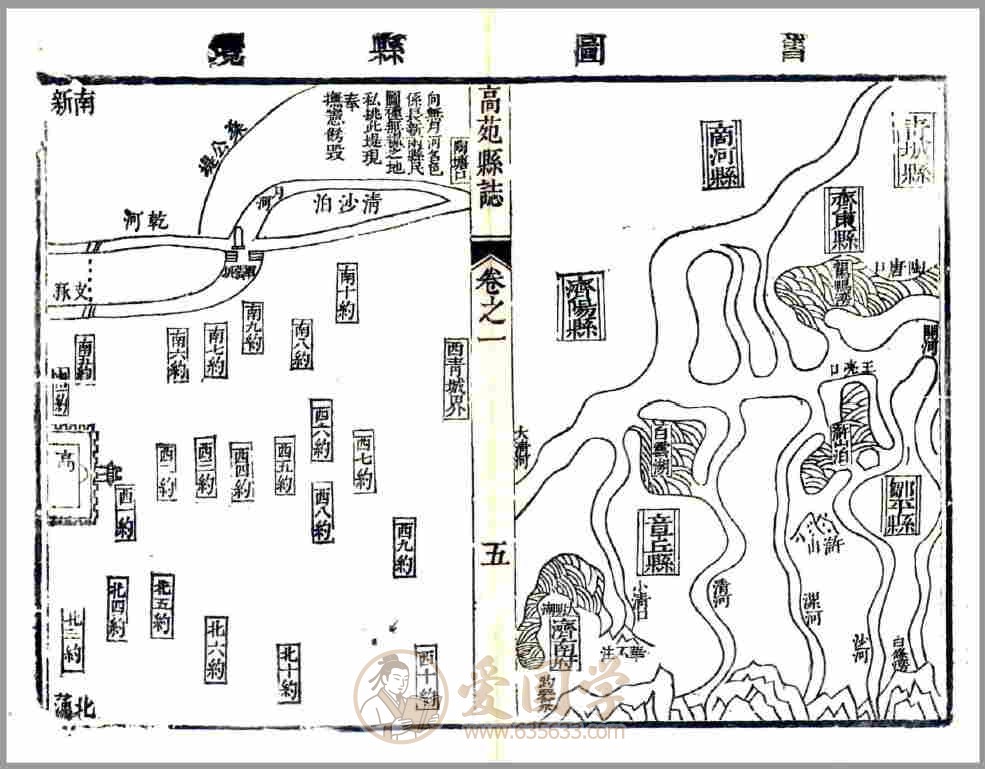 圖
縣
境
青城縣
商河縣
齊東縣
陶唐口
濟陽縣
大清河
白雲湖
滸山泊
鄒平縣
章丘縣
滸山
小清口
清河
漯河
沙河
白條溝
華不注
明湖
濟南府
趵突泉
高苑縣誌
卷之一
五
向無月河名色
係長新兩縣民
圖種無糧之地
私挑此堤現
奉
撫憲飭毀
陶塘口
南新
清沙泊
月河
乾河
支脈
南十約
南九約
南八約
南七約
南六約
南五約
西青城界
高
西一約
西二約
西三約
西四約
西五約
西六約
西七約
西八約
西九約
西十約
北三約
北四約
北五約
北六約
北十約
北蒲
爱国学
www.635633.com